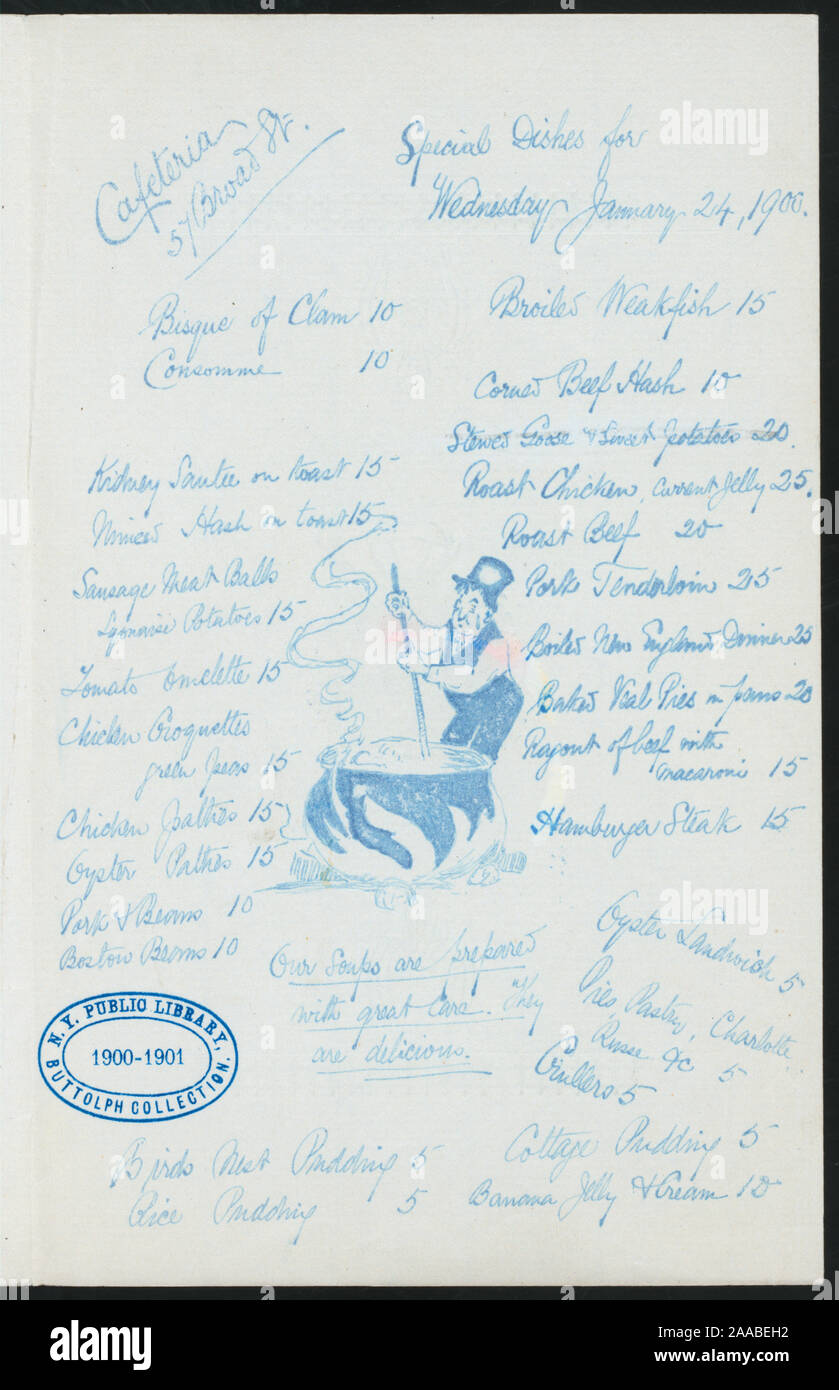 Cafeteria
57 Broad St.
Special Dishes for
Wednesday January 24, 1900.
Bisque of Clam 10
Consomme 10
Broiled Weakfish 15
Corned Beef Hash 10
Stewed Goose & Sweet potatoes 20.
Roast Chicken, Current Jelly 25.
Roast Beef 20
Pork Tenderloin 25
Boiled New England Dinner 25
Baked Veal Pies in pans 20
Ragout of beef with
macaroni 15
Hamburger Steak 15
Kidney Sautee on toast 15
Minced Hash on toast 15
Sausage Meat Balls
Lyonaise Potatoes 15
Tomato Omelette 15
Chicken Croquettes
green peas 15
Chicken patties 15
Oyster Patties 15
Pork & Beans 10
Boston Beans 10
Our Soups are prepared
with great Care. They
are delicious.
Oyster Sandwich 5
Pies, Pastry, Charlotte
Russe &c 5
Crullers 5
N.Y. PUBLIC LIBRARY,
1900-1901
BUTTOLPH COLLECTION.
Birds Nest Pudding 5
Rice Pudding 5
Cottage Pudding 5
Banana Jelly & Cream 10
alamy
Image ID: 2AABEH2
www.alamy.com